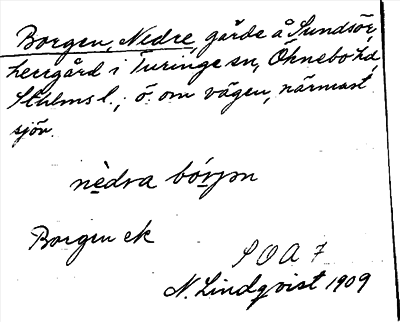 Borgen, Nedre, gärde å Sundsör,
herrgård i Turinge sn, Öknebo hd,
Sthlms l., ö. om vägen, närmast
sjön.
nèdra bórjən
Borgen ek
S O A 7
N. Lindqvist 1909